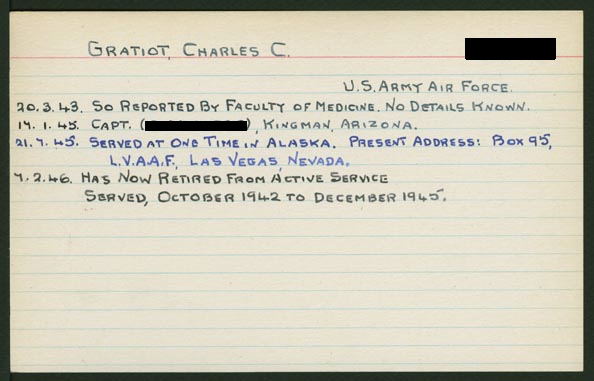 GRATIOT, CHARLES C.
U.S. ARMY AIR FORCE.
20.3.43. SO REPORTED BY FACULTY OF MEDICINE. NO DETAILS KNOWN.
17.1.45. CAPT. ( ), KINGMAN, ARIZONA.
21.7.45. SERVED AT ONE TIME IN ALASKA. PRESENT ADDRESS: BOX 95,
L.V.A.A.F., LAS VEGAS, NEVADA.
7.2.46. HAS NOW RETIRED FROM ACTIVE SERVICE
SERVED, OCTOBER 1942 TO DECEMBER 1945.